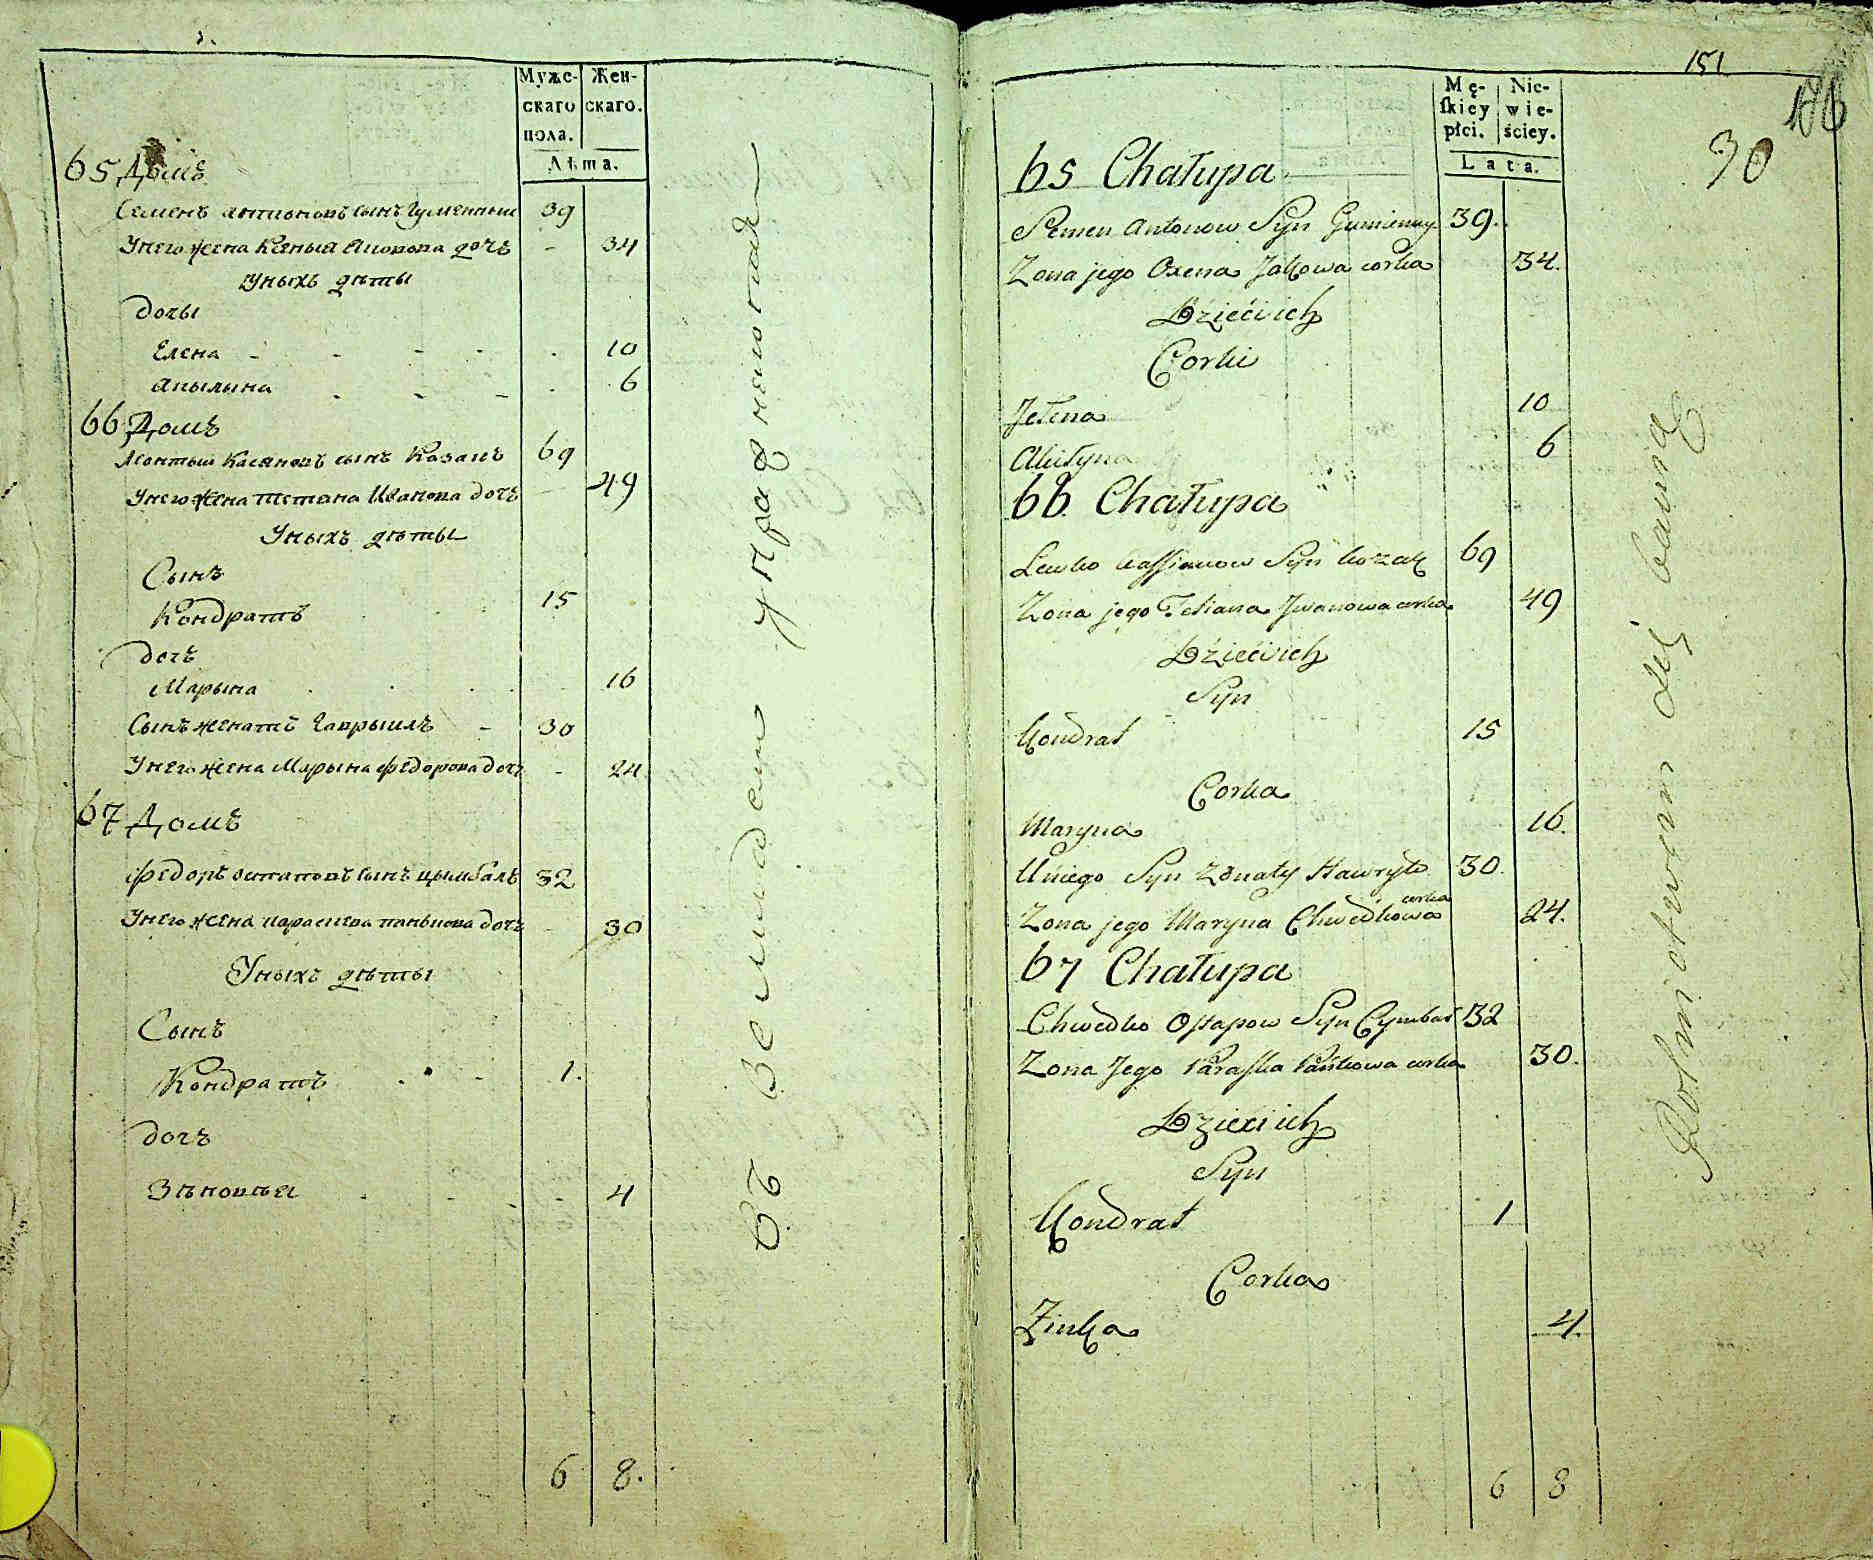 Муже-
скаго
пола.
Жен-
скаго.
Лѣта.
65 Домъ
Семенъ антоновъ сынъ Гуменный 39
Унего жена Ксенья Яковова дочъ - 34
Уныхъ дѣты
дочы
Елена - - - - . 10
акылына . - - . 6
66 Домъ
Леонтый Касяновъ сынъ Козакъ 69
Унего жена Тетяна Иванова дочъ - 49
Уныхъ дѣты
Сынъ
Кондратъ 15
дочъ
Марына . . . . 16
Сынъ женатъ Гаврыилъ - 30
Унего жена Марына федорова дочъ - 24
67 Домъ
федоръ остаповъ сынъ цымбалъ 32
Унего жена Параскева панькова дочъ - 30
Уныхъ дѣты
Сынъ
Кондратъ . . - 1.
дочъ
Зѣновѣя . - . - 4
6 8.
Въ земледелии упражняются
151
176
30
Mę-
skiey
płci.
Nie-
wie-
ściey.
Lata.
65 Chałupa
Semen Antonow Syn Gumienny 39.
Zona jego Oxena Jakowa corka 34.
Dzieci ich
Corki
Jełena 10
Akiłyna 6
66 Chałupa
Lewko Kassianow Syn kozak 69
Zona jego Tetiana Jwanowa corka 49
Dzieci ich
Syn
Kondrat 15
Corka
Maryna 16.
U niego Syn Zonaty Hawryło 30.
Zona jego Maryna Chwedkowa corka 24.
67 Chałupa
Chwedko Ostapow Syn Cymbał 32
Zona Jego Paraska Pańkowa corka 30.
Dzieci ich
Syn
Kondrat 1
Corka
Zinka 4.
6 8
Rolnictwem się bawią